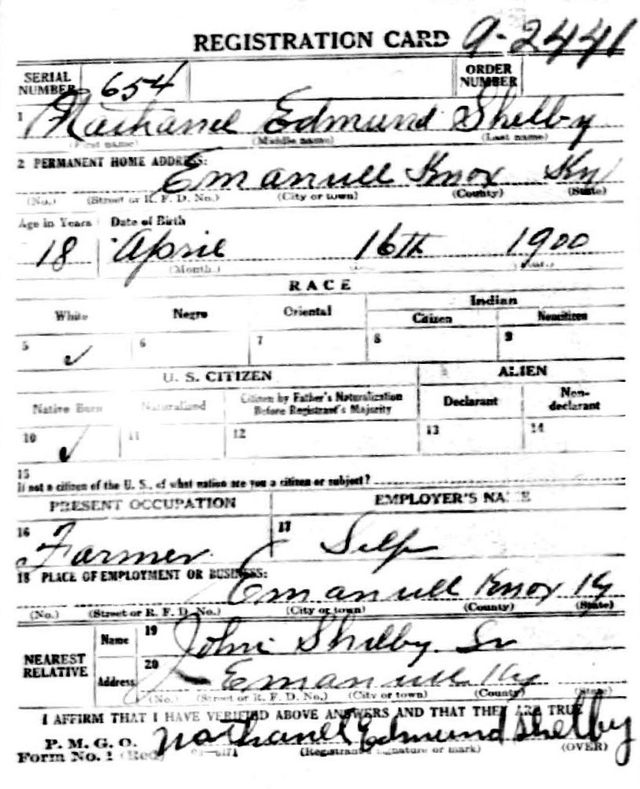 REGISTRATION CARD 9-2441
SERIAL NUMBER 654 ORDER NUMBER
1 Nathanel Edmund Shelby
(First name) (Middle name) (Last name)
2 PERMANENT HOME ADDRESS:
Emanuell Knox Ky
(No.) (Street or R. F. D. No.) (City or town) (County) (State)
Age in Years Date of Birth
18 April 16th 1900
(Month.) (Year.)
RACE
White Negro Oriental Indian
Citizen Noncitizen
5 ✓ 6 7 8 9
U. S. CITIZEN ALIEN
Native Born Naturalized Citizen by Father's Naturalization Before Registrant's Majority Declarant Non-declarant
10 ✓ 11 12 13 14
15
If not a citizen of the U. S., of what nation are you a citizen or subject?
PRESENT OCCUPATION EMPLOYER'S NAME
16 Farmer 17 Self
18 PLACE OF EMPLOYMENT OR BUSINESS:
Emanuell Knox Ky
(No.) (Street or R. F. D. No.) (City or town) (County) (State)
NEAREST RELATIVE
Name 19 John Shelby Sr
Address 20 Emanuell Ky
(No.) (Street or R. F. D. No.) (City or town) (County) (State)
I AFFIRM THAT I HAVE VERIFIED ABOVE ANSWERS AND THAT THEY ARE TRUE
P. M. G. O.
Form No. 1 (Red) Nathanel Edmund Shelby
(Registrant's signature or mark) (OVER)